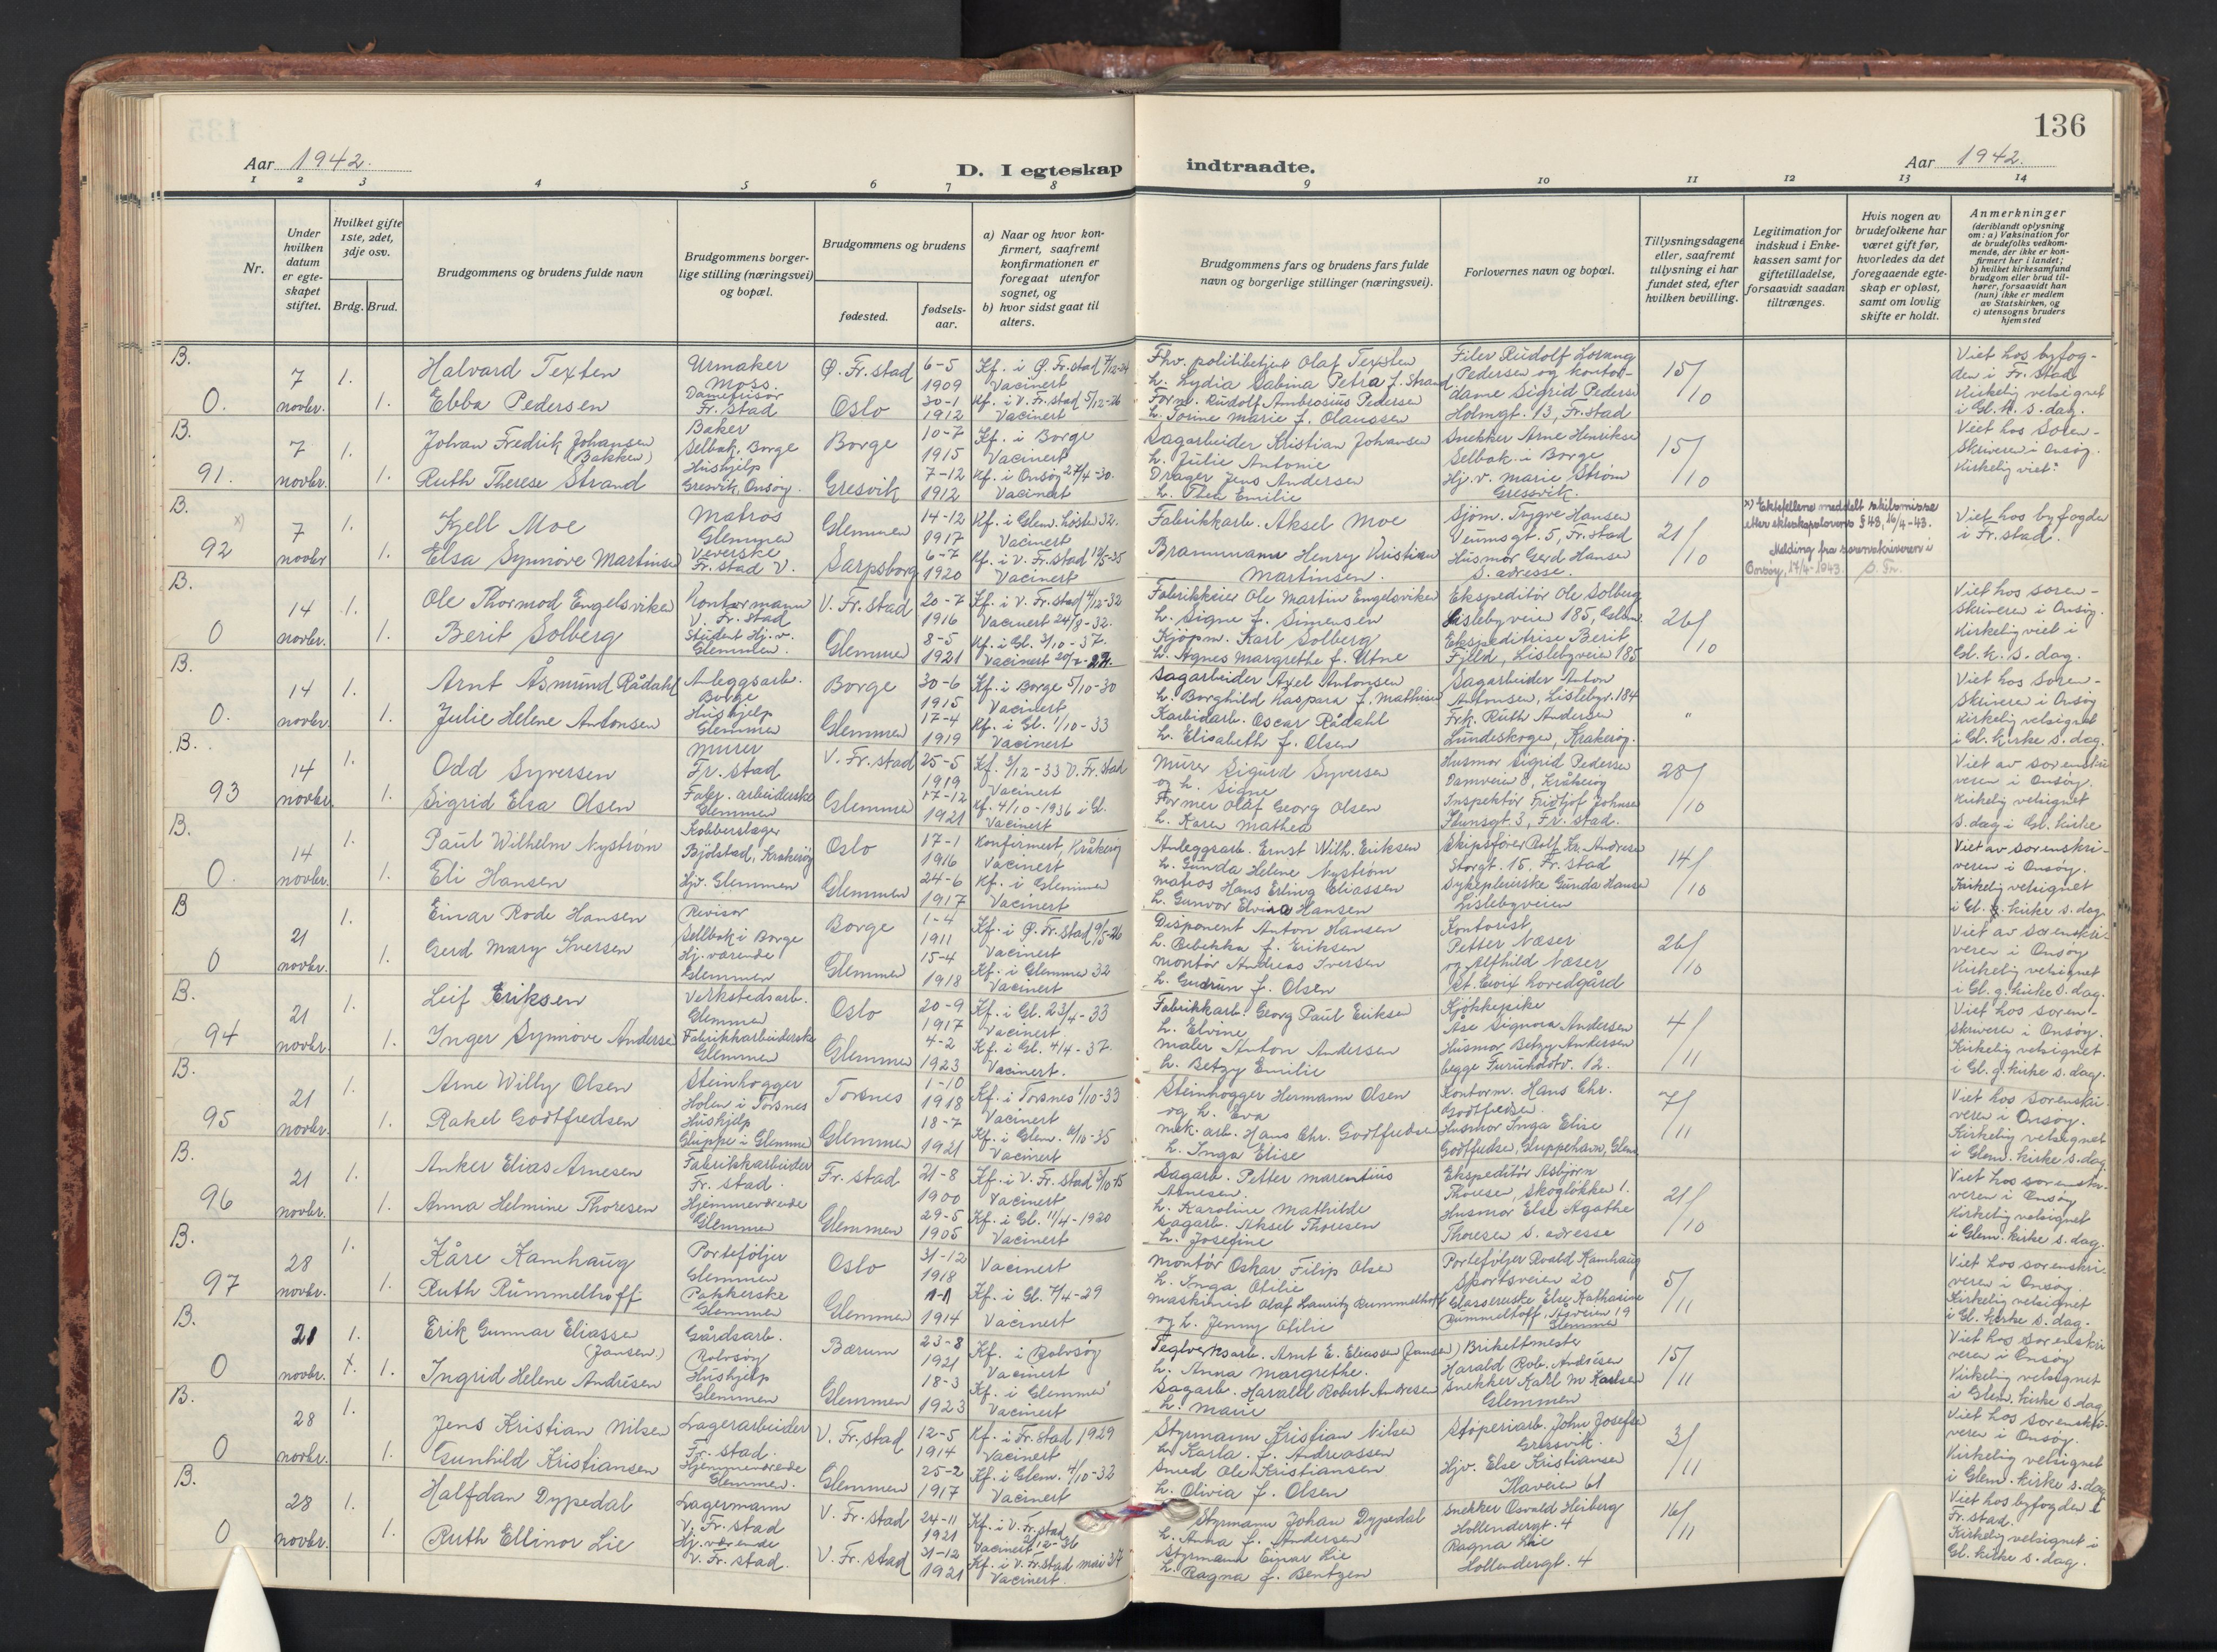 136
Aar 1942.
D. I egteskap indtraadte.
Aar 1942.
1 2 3 4 5 6 7 8 9 10 11 12 13 14
Nr.
Under hvilken datum er egteskapet stiftet.
Hvilket gifte 1ste, 2det, 3dje osv.
Brdg. Brud.
Brudgommens og brudens fulde navn
Brudgommens borgerlige stilling (næringsvei) og bopæl.
Brudgommens og brudens
fødested.
fødselsaar.
a) Naar og hvor konfirmert, saafremt konfirmationen er foregaat utenfor sognet, og
b) hvor sidst gaat til alters.
Brudgommens fars og brudens fars fulde navn og borgerlige stillinger (næringsvei).
Forlovernes navn og bopæl.
Tillysningsdagene eller, saafremt tillysning ei har fundet sted, efter hvilken bevilling.
Legitimation for indskud i Enkekassen samt for giftetilladelse, forsaavidt saadan tiltrænges.
Hvis nogen av brudefolkene har været gift før, hvorledes da det foregaaende egteskap er opløst, samt om lovlig skifte er holdt.
Anmerkninger (deriblandt oplysning om: a) Vaksination for de brudefolks vedkommende, der ikke er konfirmert her i landet; b) hvilket kirkesamfund brudgom eller brud tilhører, forsaavidt han (hun) ikke er medlem av Statskirken, og c) utensogns bruders hjemsted
B. 7 1. Halvard Texten Urmaker Moss. Ø. Fr.stad 6-5 1909 Kf. i Ø. Fr.stad 7/12-24 Vacinert
O. novbr. 1. Ebba Pedersen Damefrisør Fr. stad Oslo 30-1 1912 Kf. i V. Fr.stad 5/12-26 Vacinert
Fhv. politibetjent Olaf Texten
h. Lydia Sabina Petra f. Strand
Form. Rudolf Ambrosius Pedersen
h. Torine Marie f. Olaussen
Filer Rudolf Lorang
Pedersen og kontor-
dame Sigrid Pedersen
Holmgt. 13, Fr.stad
15/10
Viet hos byfog-
den i Fr. stad
Kirkelig velsignet
i Gl. k. s. dag.
B. 7 1. Johan Fredrik Johansen (Bakken) Baker Selbak. Borge Borge 10-7 1915 Kf. i Borge Vacinert
91. novbr. 1. Ruth Therese Strand Hushjelp Gresvik, Onsøy. Gresvik 7-12 1912 Kf. i Onsøy 27/4-30. Vacinert
Sagarbeider Kristian Johansen
h. Julie Antonie
Drager Jens Andersen
h. Thea Emilie
Snekker Arne Henriksen
Selbak i Borge
Hj.v. Marie Strøm
Gressvik.
15/10
Viet hos Soren-
skriveren i Onsøy.
Kirkelig viet.
B. x) 7 1. Kjell Moe Matros Glemmen Glemmen 14-12 1917 Kf. i Glem. høsten 32. Vacinert
92 novbr 1. Elsa Synnøve Martinsen Veverske Fr. stad V. Sarpsborg 6-7 1920 Kf. i V. Fr.stad 12/5-35 Vacinert
Fabrikkarb. Aksel Moe
Brannmann Henry Kristian
Martinsen.
Sjøm. Trygve Hansen
Veumsgt. 5, Fr. stad
Husmor Gerd Hansen
S. adresse.
21/10
x) Ektefellene meddelt skilsmisse
etter ekteskapslovens § 43, 16/4-43.
Melding fra sorenskriveren i
Onsøy, 17/4-1943. S. Fr.
Viet hos byfogden
i Fr. stad.
B. 14 1. Ole Thormod Engelsviken Kontormann V. Fr. stad V. Fr. stad 20-7 1916 Kf. i V. Fr.stad 4/12-32 Vacinert 24/8-32.
O novbr. 1. Berit Solberg Student Hj.v. Glemmen. Glemmen 8-5 1921 Kf. i Gl. 3/10-37. Vacinert
Fabrikkeier Ole Martin Engelsviken
h. Signe f. Simensen
Kjøpm. Karl Solberg
h. Agnes Margrethe f. Utne
Ekspeditør Ole Solberg
Lislebyveien 185, Glem.
Ekspeditrise Berit
Fjeld, Lislebyveien 185
26/10
Viet hos soren-
skriveren i Onsøy.
Kirkelig viet i
Gl. k. s. dag.
B. 14 1. Arnt Åsmund Rådahl Anleggsarb. Borge Borge 30-6 1915 Kf. i Borge 5/10-30 Vacinert
O. novbr. 1. Julie Helene Antonsen Hushjelp Glemmen Glemmen 17-4 1919 Kf. i Gl. 1/10-33 Vacinert
Sagarbeider Axel Antonsen
h. Borghild Kaspara f. Mathisen
Karbidarb. Oscar Rådahl
h. Elisabeth f. Olsen
Sagarbeider Anton
Antonsen, Lislebyv. 184
Frk. Ruth Andersen
Lundeskogen, Kråkerøy.
"
Viet hos Soren-
skriveren i Onsøy
Kirkelig velsignet
i Gl. kirke s. dag.
B. 14 1. Odd Syversen Murer Fr. stad V. Fr. stad 25-5 1919 Kf. 3/12-33 V. Fr. stad Vacinert
93 novbr. 1. Sigrid Elsa Olsen Fabr. arbeiderske Glemmen Glemmen 17-12 1921 Kf. 4/10-1936 i Gl. Vacinert
Murer Sigurd Syversen
og h. Signe
Former Olaf Georg Olsen
h. Karen Mathea
Husmor Sigrid Pedersen
Damveien 8, Kråkerøy
Inspektør Fridtjof Johnsen
Idunsgt. 3, Fr. stad.
28/10
Viet av sorenskri-
veren i Onsøy.
Kirkelig velsignet
S. dag i Gl. kirke
B. 14 1. Paul Wilhelm Nystrøm Kobberslager Bjølstad, Kråkerøy Oslo 17-1 1916 Konfirmert, Kråkerøy Vacinert
O. novbr. 1. Eli Hansen Hjv. Glemmen Glemmen 24-6 1917 Kf. i Glemmen Vacinert
Anleggsarb. Ernst Wilh. Eriksen
h. Gunda Helene Nystrøm
Matros Hans Erling Eliassen
h. Gunvor Elvina Hansen
Skipsfører Rolf Kr. Andresen
Storgt. 15, Fr. stad
Sykepleierske Gunda Hansen
Lislebyveien
14/10
Viet av sorenskri-
veren i Onsøy.
Kirkelig velsignet
i Gl. g. kirke s. dag.
B 21 1. Einar Rode Hansen Revisor Sellbak i Borge Borge 1-4 1911 Kf. i Ø. Fr. stad 9/5-26 Vacinert
O novbr. 1. Gerd Mary Iversen Hj. værende Glemmen Glemmen 15-4 1918 Kf. i Glemmen 32 Vacinert
Disponent Anton Hansen
h. Rebekka f. Eriksen
Montør Andreas Iversen
h. Gudrun f. Olsen
Kontorist
Petter Næser
og Alfhild Næser
St. Croix hovedgård
26/10
Viet av sorenskri-
veren i Onsøy
Kirkelig velsignet
i Gl. g. kirke s. dag.
B. 21 1. Leif Eriksen Verkstedsarb. Glemmen Oslo 20-9 1917 Kf. i Gl. 23/4-33 Vacinert
94 novbr. 1. Inger Synnøve Andersen Fabrikkarbeiderske Glemmen Glemmen 4-2 1923 Kf. i Gl. 4/4-37. Vacinert.
Fabrikkarb. Georg Paul Eriksen
h. Elvine
Maler Anton Andersen
h. Betzy Emilie
Kjøkkenpike
Åse Signora Andersen
Husmor Betzy Andersen
begge Furuholdtv. 12.
4/11
Viet hos soren-
skriveren i Onsøy.
Kirkelig velsignet
i Gl. g. kirke s. dag.
B. 21 1. Arne Willy Olsen Steinhogger Holen i Torsnes Torsnes 1-10 1918 Kf. i Torsnes 1/10-33 Vacinert
95 novbr. 1. Rakel Godtfredsen Hushjelp Gluppe i Glemmen Glemmen 18-7 1921 Kf. i Glem. 6/10-35 Vacinert
Steinhogger Hermann Olsen
og h. Eva
Mek. arb. Hans Chr. Godtfredsen
h. Inga Elise
Kontorm. Hans Chr.
Godtfredsen.
Husmor Inga Elise
Godtfredsen, Gluppehavn, Glem.
7/11
Viet hos sorenskri-
veren i Onsøy.
Kirkelig velsignet
i Glem. kirke s. dag
B. 21 1. Anker Elias Arnesen Fabrikkarbeider Fr. stad. Fr. stad 21-8 1900 Kf. i V. Fr. stad 3/10-15 Vacinert
96 novbr. 1. Anna Helmine Thoresen Hjemmeværende Glemmen Glemmen 29-5 1905 Kf. i Gl. 11/4-1920 Vacinert
Sagarb. Petter Marentius
Arnesen.
h. Karoline Mathilde
Sagarb. Aksel Thoresen
h. Josefine
Ekspeditør Asbjørn
Thoresen, Skogløkken 1.
Husmor Else Agathe
Thoresen S. adresse
21/10
Viet hos sorenskri-
veren i Onsøy
Kirkelig velsignet
i Glem. kirke s. dag.
B. 28 1. Kåre Kamhaug Porteføljer Glemmen Oslo 31-12 1918 Vacinert
97 novbr. 1. Ruth Rummelhoff Pakkerske Glemmen Glemmen 1-1 1914 Kf. i Gl. 7/4-29 Vacinert
Montør Oskar Filip Olsen
h. Inga Otilie
Maskinist Olaf Hauritz Rummelhoff
og h. Jenny Otilie
Porteføljer Roald Kamhaug
Sportsveien 20
Glasserske Else Kathasine
Rummelhoff, Åsveien 19
Glemmen
5/11
Viet hos sorenskri-
veren i Onsøy.
Kirkelig velsignet
i Gl. kirke s. dag.
B. 21 1. Erik Gunnar Eliassen (Jansen.) Gårdsarb. Rolvsøy Bærum 23-8 1921 Kf. i Rolvsøy Vacinert
O novbr. 1. Ingrid Helene Andrésen Hushjelp Glemmen Glemmen 18-3 1923 Kf. i Glemmen Vacinert
Teglverksarb. Arnt E. Eliassen (Jansen)
h. Anna Margrethe.
Sagarb. Harald Robert Andresen
h. Marie
Brikettmester
Harald Rob. Andrésen
Snekker Karl M Karlsen
Glemmen
15/11
Viet hos sorenskri
veren i Onsøy
Kirkelig velsignet
i Glem. kirke s. dag
B. 28 1. Jens Kristian Nilsen Lagerarbeider Fr. stad. V. Fr. stad 12-5 1914 Kf. i Fr. stad 1929 Vacinert
O novbr. 1. Gunhild Kristiansen Hjemmeværende Glemmen. Glemmen 25-2 1917 Kf. i Glem. 4/10-32 Vacinert
Styrmann Kristian Nilsen
h. Karla f. Andreassen
Smed Ole Kristiansen
h. Olivia f. Olsen
Støperiarb. John Josefsen
Gressvik.
Hjv. Else Kristiansen
Haveien 61
3/11
Viet hos sorenskri-
veren i Onsøy.
Kirkelig velsignet
i Glem. kirke s. dag
B. 28 1. Halfdan Dypedal Lagermann V. Fr. stad V. Fr. stad 24-11 1921 Kf. i V. Fr. stad 2/12-36 Vacinert
O novbr. 1. Ruth Ellinor Lie Hj. værende V. Fr. stad. V. Fr. stad 31-12 1921 Kf. i V. Fr. stad mai 37 Vacinert.
Styrmann Johan Dypedal
h. Anna f. Andersen
Styrmann Einar Lie
h. Ragna f. Bentzen
Snekker Osvald Heiberg
Hollendergt. 4
Ragna Lie
Hollendergt. 4
16/11
Viet hos byfogden i
Fr. stad.
Kirkelig velsignet i
Gl. kirke s. dag.